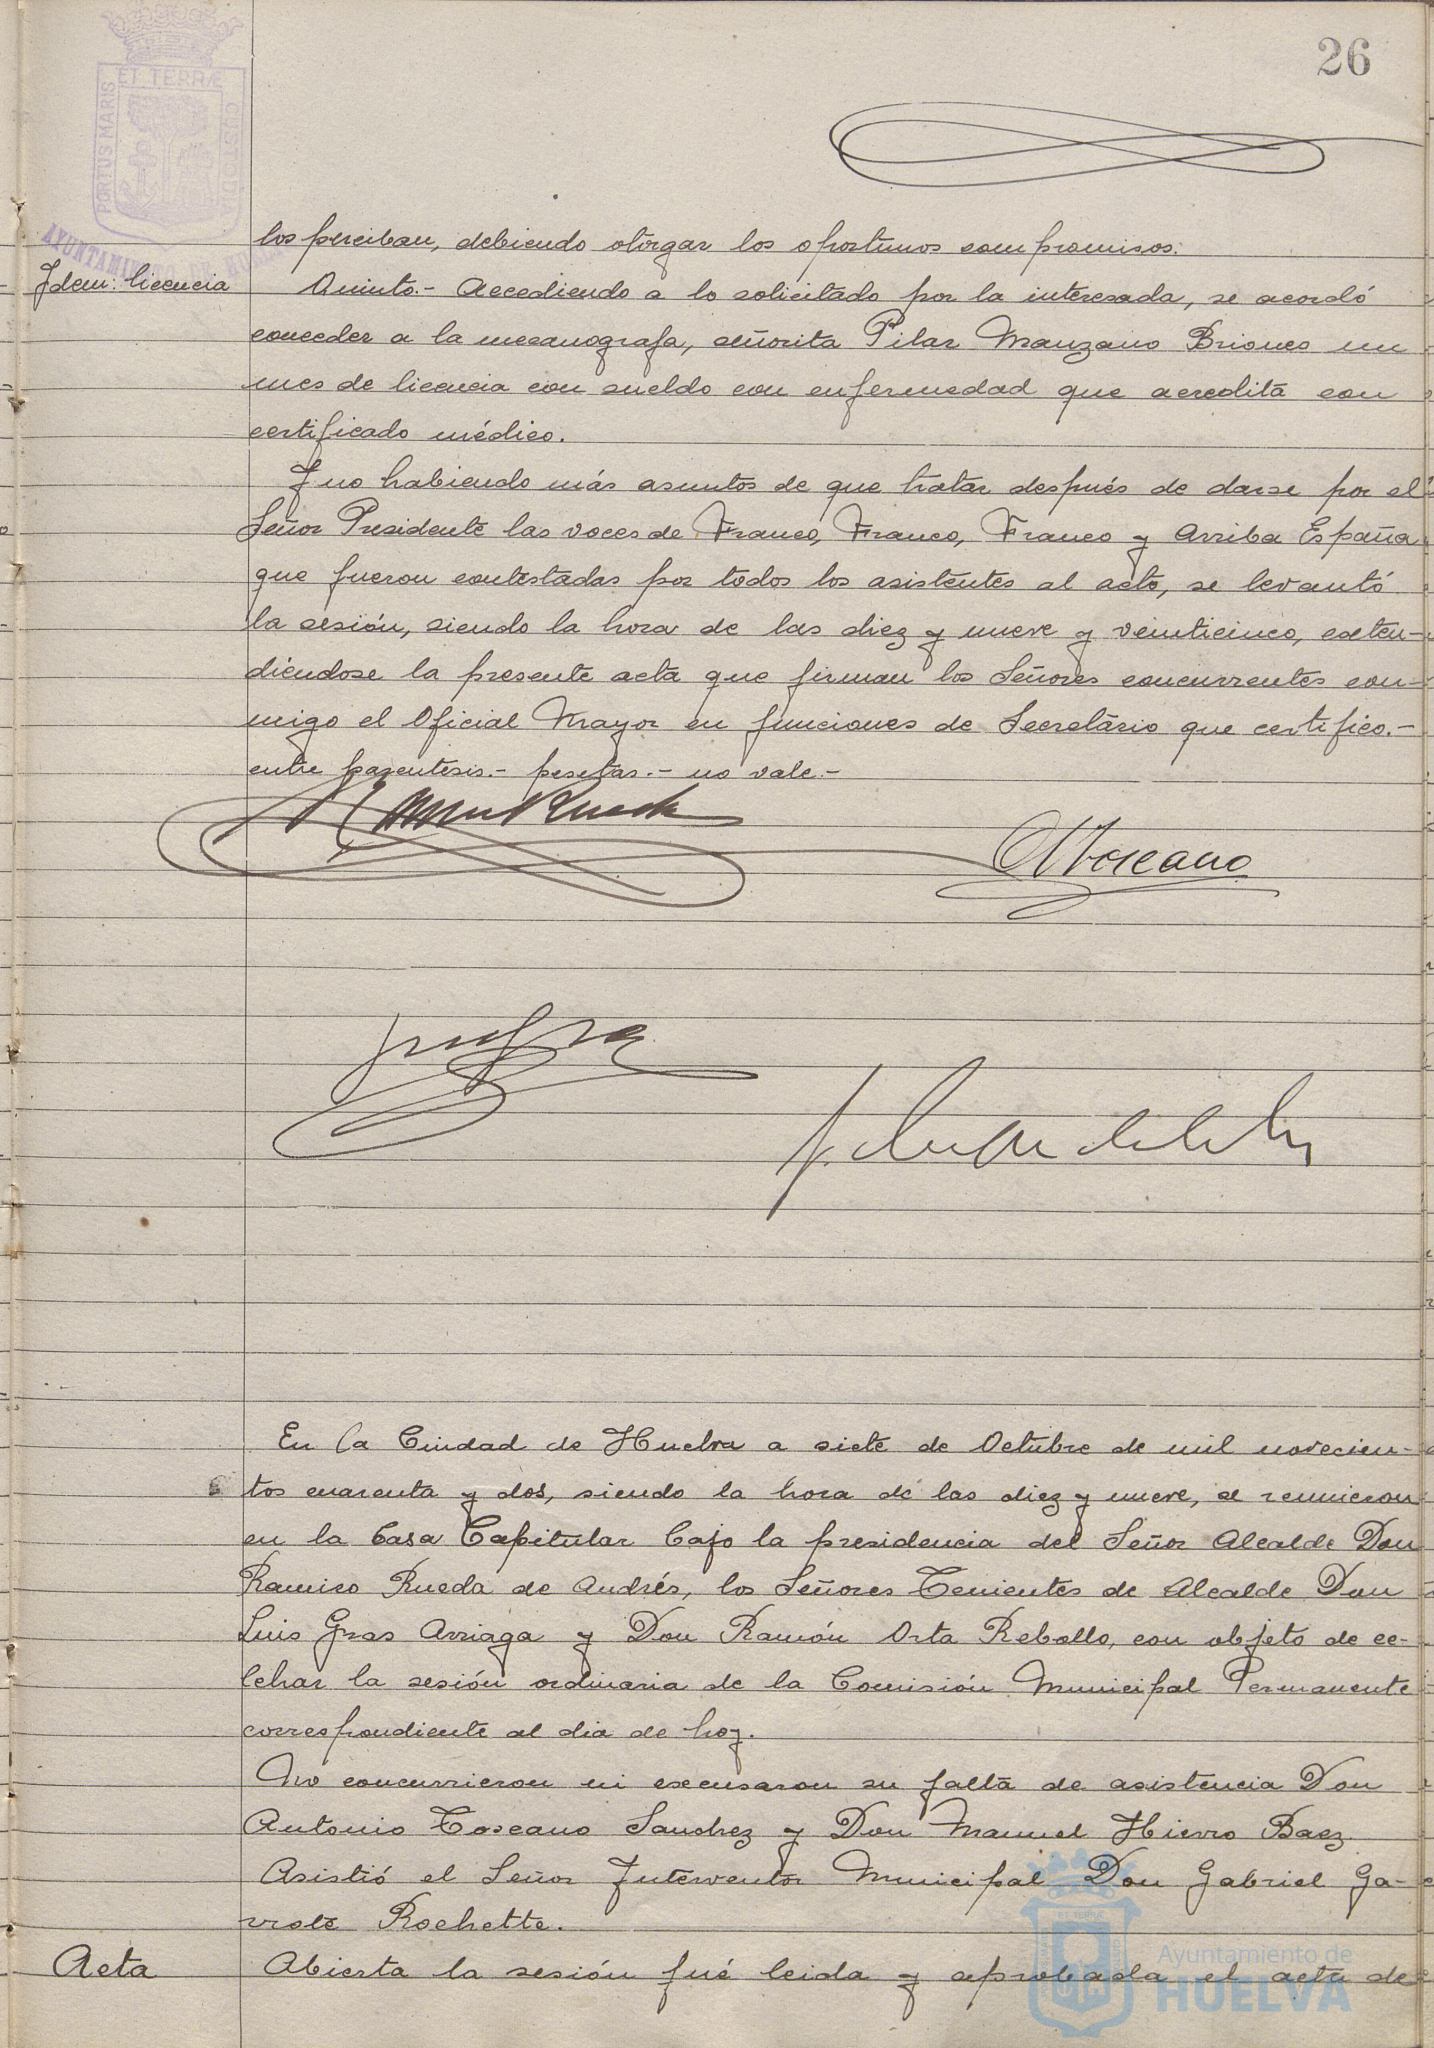 26
PORTUS MARIS ET TERRÆ CUSTODIA
AYUNTAMIENTO DE HUELVA
los perciban, debiendo otorgar los oportunos compromisos.
Idem: licencia
Quinto.- Accediendo a lo solicitado por la interesada, se acordó
conceder a la mecanografa, señorita Pilar Manzano Briones un
mes de licencia con sueldo con enfermedad que acredita con
certificado médico.
Y no habiendo más asuntos de que tratar después de darse por el
Señor Presidente las voces de Franco, Franco, Franco y Arriba España
que fueron contestadas por todos los asistentes al acto, se levantó
la sesión, siendo la hora de las diez y nueve y veinticinco, exten-
diéndose la presente acta que firman los Señores concurrentes con-
migo el Oficial Mayor en funciones de Secretario que certifico.-
entre parentesis.- pesetas.- no vale.-
Ramiro Rueda
A Toscano
En la Ciudad de Huelva a siete de Octubre de mil novecien-
tos cuarenta y dos, siendo la hora de las diez y nueve, se reunieron
en la Casa Capitular bajo la presidencia del Señor Alcalde Don
Ramiro Rueda de Andrés, los Señores Tenientes de Alcalde Don
Luis Gras Arriaga y Don Ramón Orta Rebollo, con objeto de ce-
lebrar la sesión ordinaria de la Comisión Municipal Permanente
correspondiente al dia de hoy.
No concurrieron ni excusaron su falta de asistencia Don
Antonio Toscano Sanchez y Don Manuel Hierro Baez.
Asistió el Señor Interventor Municipal Don Gabriel Ga-
vrote Rochette.
Acta
Abierta la sesión fué leida y aprobada el acta de
Ayuntamiento de
HUELVA